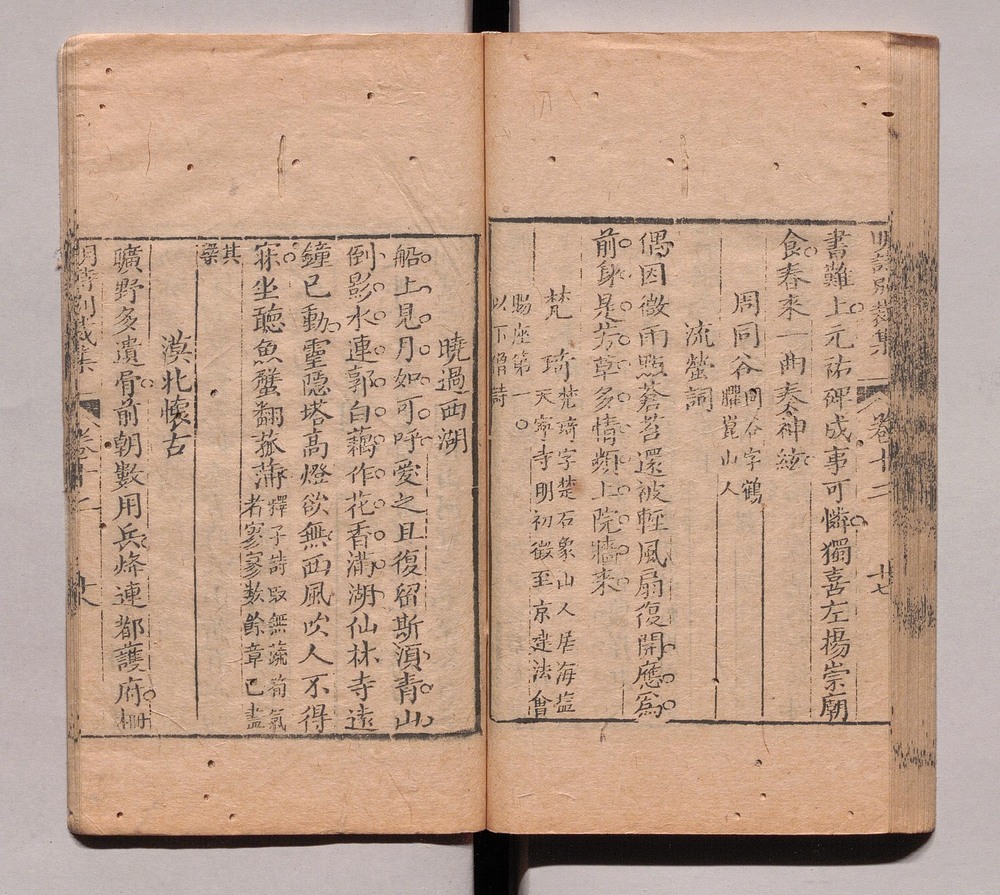 明詩別裁集 卷十二 廿七
書難上元祐碑成事可憐獨喜左揚崇廟
食春來一曲奏神絃
周同谷 同谷字鶴
臞崑山人
流螢詞
偶因微雨點蒼苔還被輕風扇復開應為
前身是芳草多情頻上院牆來
梵琦 梵琦字楚石象山人居海塩
天寧寺明初徵至京建法會
賜座第一〇
以下僧詩
曉過西湖
船上見月如可呼愛之且復留斯須青山
倒影水連郭白藕作花香滿湖仙林寺遠
鐘已動靈隱塔高燈欲無西風吹人不得
寐坐聽魚蟹翻菰蒲 釋子詩取無蔬筍氣
者寥寥數餘章已盡
其
槩
漠北懷古
曠野多遺骨前朝數用兵烽連都護府柵
明詩別裁集 卷十二 廿八